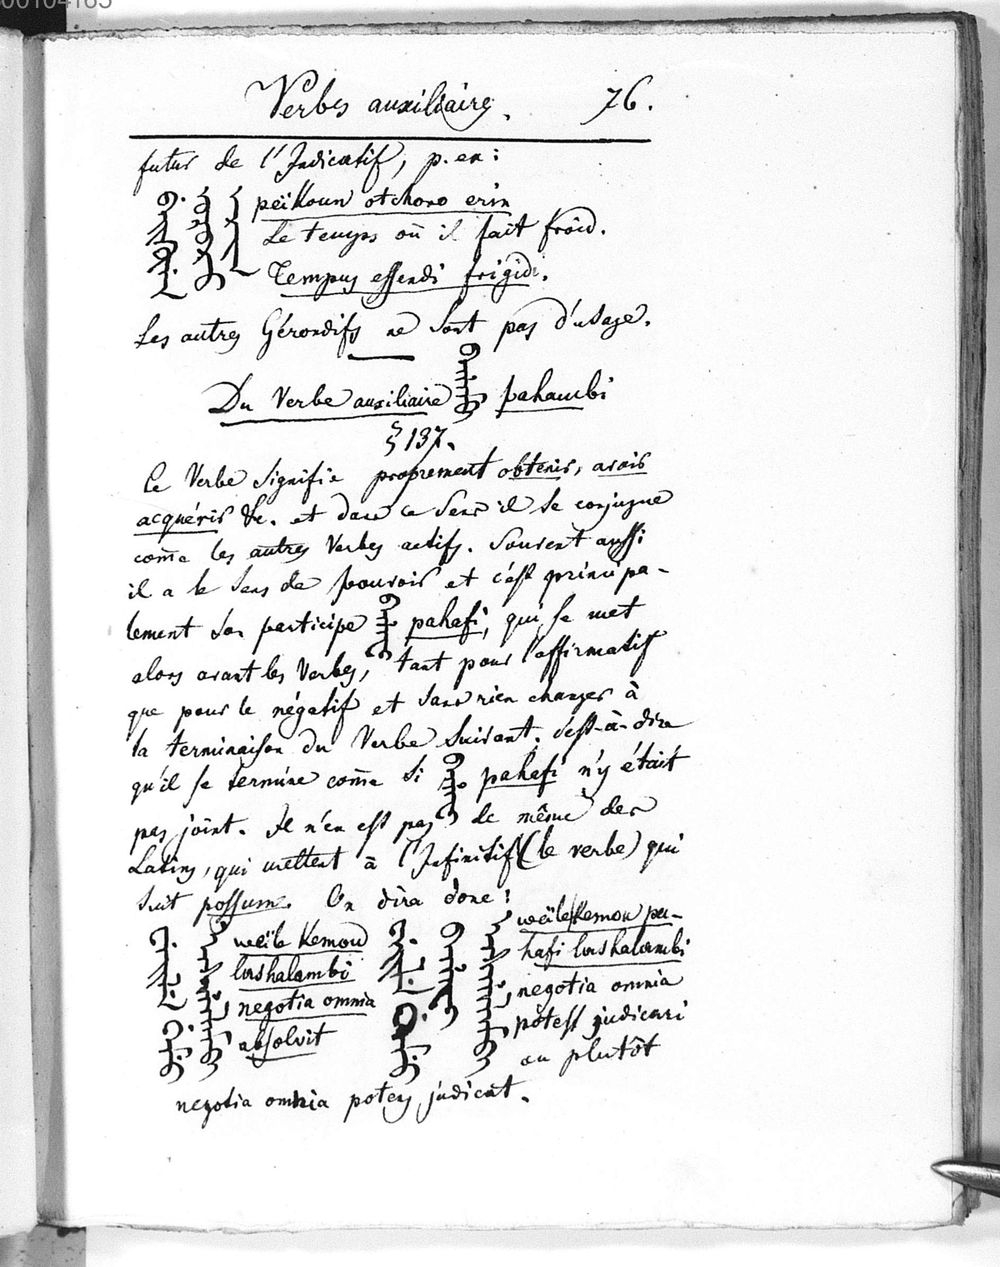 Verbes auxiliaires. 76.
futur de l'Indicatif, p. ex:
peïkoun otchoro erin
Le temps où il fait froid.
Tempus essendi frigidi.
Les autres Gérondifs ne sont pas d'usage.
Du Verbe auxiliaire pahambi
§ 137.
Ce Verbe signifie proprement obtenir, avoir
acquérir &c. et dans ce sens il se conjugue
com̄e les autres Verbes actifs. Souvent aussi
il a le sens de pouvoir et c'est principa-
lement son participe pahafi, qui se met
alors avant les Verbes, tant pour l'affirmatif
que pour le négatif et sans rien changer à
la terminaison du Verbe suivant. c'est-à-dire
qu'il se termine com̄e si pahafi n'y était
pas joint. Il n'en est pas de même des
Latins, qui mettent à l'Infinitif (le verbe) qui
suit possum. On dira donc:
weïle kemou
lashalambi
negotia omnia
absolvit
weïle kemou pa-
hafi lashalambi
negotia omnia
potest judicari
ou plutôt
negotia omnia potens judicat.